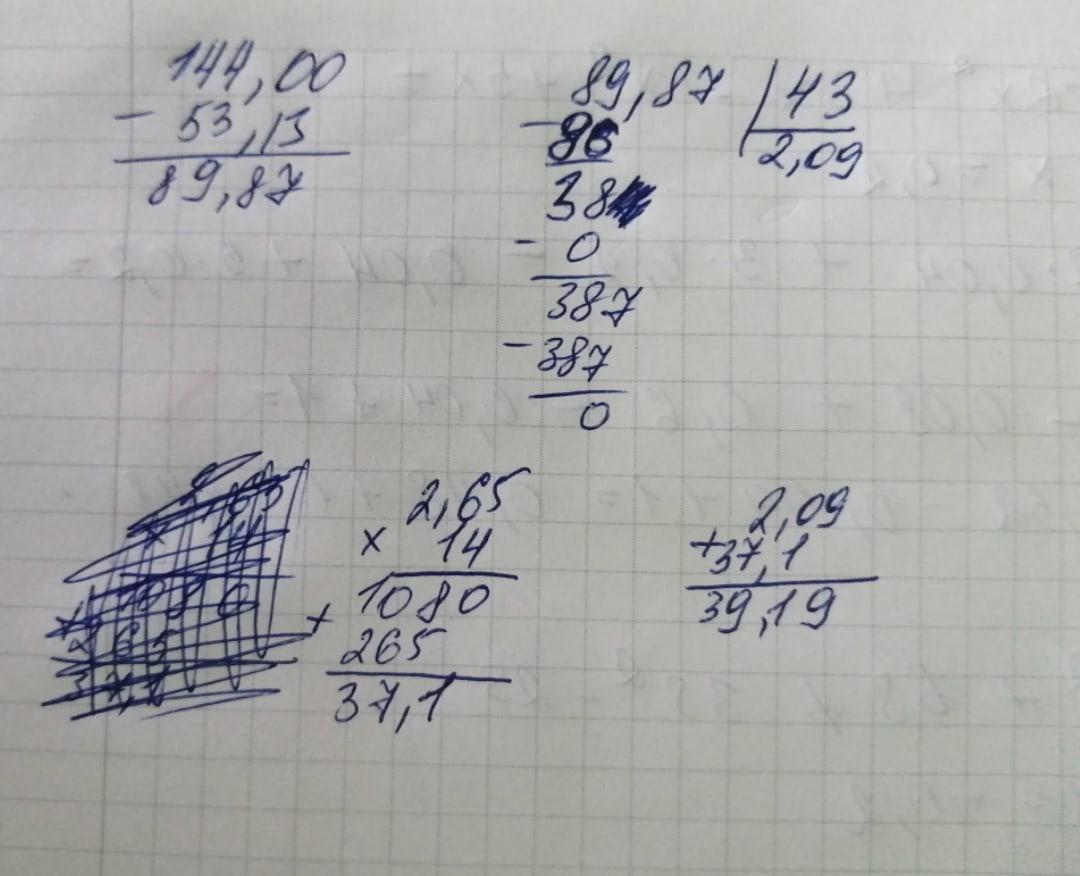 144,00
- 53,13
89,87
89,87 | 43
- 86 2,09
38
- 0
387
- 387
0
2,65
x 14
1080
+ 265
37,1
2,09
+ 37,1
39,19